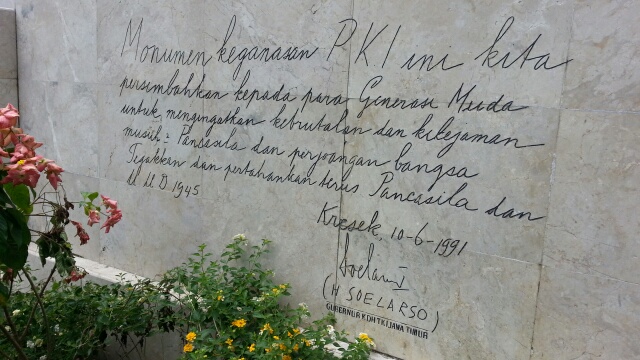 Monumen keganasan PKI ini kita
persembahkan kepada para Generasi Muda
untuk mengingatkan kebrutalan dan kekejaman
musuh2 Pancasila dan perjoangan bangsa
Tegakkan dan pertahankan terus Pancasila dan
U U D. 1945
Kresek, 10-6-1991
(H SOELARSO)
GUBERNUR KDH TK I JAWA TIMUR